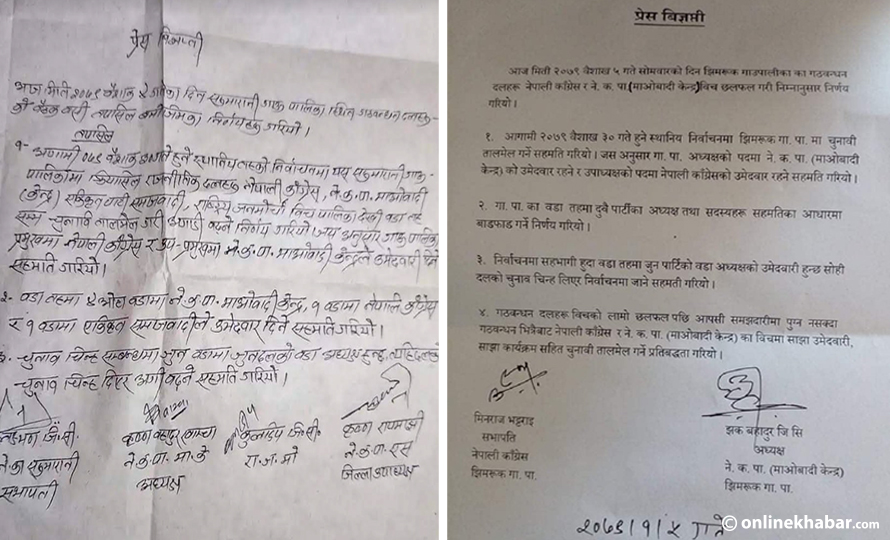 प्रेस विज्ञप्ती
आज मिति २०७९ बैशाख ५ गतेका दिन सरुमारानी गाउँ पालिका स्थित गठबन्धन दलहरु-
को बैठक बसी तपसिल बमोजिमका निर्णयहरु गरियो ।
तपसिल
१- आगामी ०७९ बैशाख ३० गते हुने स्थानिय तहको निर्वाचनमा यस सरुमारानी गाउँ-
पालिकामा क्रियासिल राजनीतिक दलहरु नेपाली काँग्रेस, ने.क.पा. माओवादी
(केन्द्र) एकिकृत समाजवादी, राष्ट्रिय जनमोर्चा बिच पालिका देखी वडा तह
सम्म चुनावी तालमेल गरी अगाडी बढ्ने निर्णय गरियो । जस अनुसार गाउँ पालिका
प्रमुखमा नेपाली काँग्रेस र उप-प्रमुखमा ने.क.पा. माओवादी केन्द्रले उमेदवारी दिने
सहमति गरियो ।
२- वडा तहमा ४ ओटा वडामा ने.क.पा. माओवादी केन्द्र, १ वडामा नेपाली काँग्रेस
र १ वडामा एकिकृत समाजवादीले उमेदवार दिने सहमति गरियो ।
३- चुनाव चिन्ह सम्बन्धमा जुन वडामा जुन दलको वडा अध्यक्ष हुन्छ, त्यहि दलको
चुनाव चिन्ह लिएर अगी बढ्ने सहमति गरियो ।
जि.सी.
ने.का सरुमारानी
सभापती
कृष्ण बहादुर
ने.क.पा. मा.के
अध्यक्ष
कुलदिप जि.सी.
रा.ज.मो
कृष्ण
ने.क.पा. एस
जिल्ला उपाध्यक्ष
प्रेस बिज्ञप्ती
आज मिती २०७९ वैशाख ५ गते सोमवारको दिन झिमरूक गाउपालीका का गठवन्धन
दलहरू नेपाली कांग्रेस र ने. क. पा.(माओबादी केन्द्र)विच छलफल गरी निम्नानुसार निर्णय
गरियो ।
१. आगामी २०७९ वैशाख ३० गते हुने स्थानिय निर्वाचनमा झिमरूक गा. पा. मा चुनावी
तालमेल गर्ने सहमति गरियो । जस अनुसार गा. पा. अध्यक्षको पदमा ने. क. पा. (माओबादी
केन्द्र) को उमेदवार रहने र उपाध्यक्षको पदमा नेपाली कांग्रेसको उमेदवार रहने सहमति गरियो ।
२. गा. पा. का वडा तहमा दुवै पार्टीका अध्यक्ष तथा सदस्यहरू सहमतिका आधारमा
बाडफाड गर्ने निर्णय गरियो ।
३. निर्वाचनमा सहभागी हुदा वडा तहमा जुन पार्टिको वडा अध्यक्षको उमेदवारी हुन्छ सोही
दलको चुनाव चिन्ह लिएर निर्वाचनमा जाने सहमती गरियो ।
४. गठवन्धन दलहरू बिचको लामो छलफल पछि आपसी समझदारीमा पुग्न नसक्दा
गठवन्धन भित्रैबाट नेपाली कांग्रेस र ने. क. पा. (माओबादी केन्द्र) का विचमा साझा उमेदवारी,
साझा कार्यक्रम सहित चुनावी तालमेल गर्ने प्रतिबद्धता गरियो ।
मिनराज भट्टराई
सभापति
नेपाली कांग्रेस
झिमरूक गा. पा.
झक बहादुर जि सि
अध्यक्ष
ने. क. पा. (माओबादी केन्द्र)
झिमरूक गा. पा.
२०७९/१/५ गते
© onlinekhabar.com